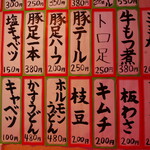 牛もつ煮
380円
トロ足
250円
豚テール
豚足ハーフ
200円
豚足一本
塩キャベツ
150円
板わさ
250円
キムチ
200円
枝豆
200円
ホルモンうどん
480円
かすうどん
480円
キャベツ
100円